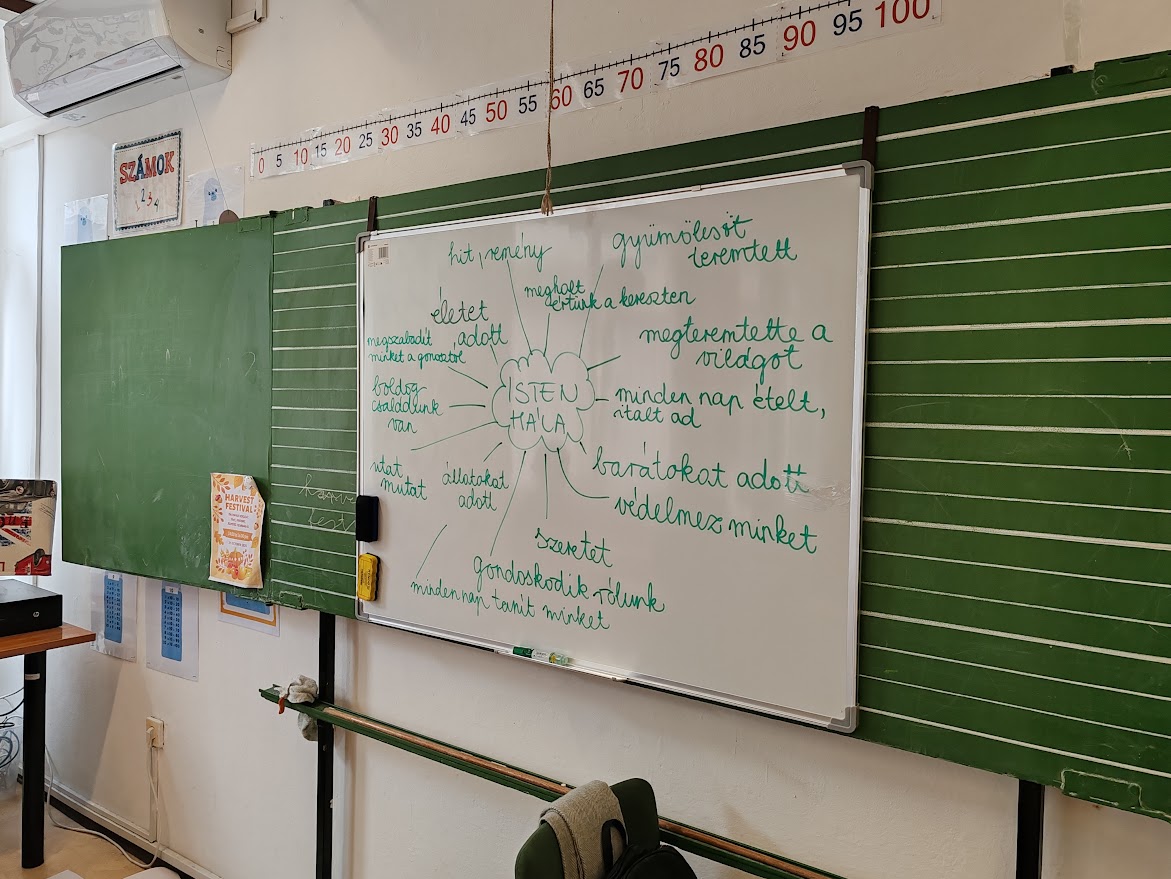 0 5 10 15 20 25 30 35 40 45 50 55 60 65 70 75 80 85 90 95 100
SZÁMOK
1 2 3 4
hit, remény
gyümölcsöt
teremtett
meghalt
értünk a kereszten
életet
adott
megteremtette a
világot
megszabadít
minket a gonosztól
ISTEN
HÁLA
minden nap ételt,
italt ad
boldog
családunk
van
barátokat adott
utat
mutat
állatokat
adott
védelmez minket
szeretet
gondoskodik rólunk
minden nap tanít minket
HARVEST
FESTIVAL